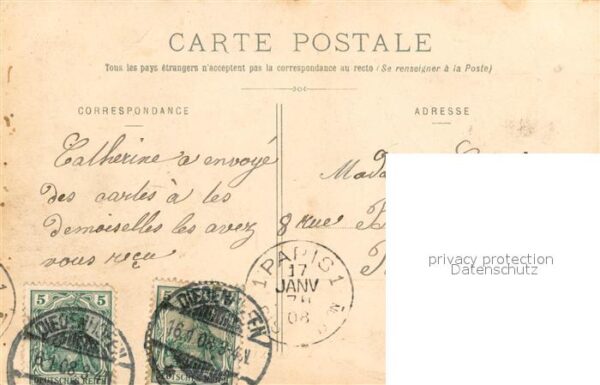 CARTE POSTALE
Tous les pays étrangers n'acceptent pas la correspondance au recto (Se renseigner à la Poste)
CORRESPONDANCE
ADRESSE
Catherine a envoyé
des cartes à les
demoiselles les avez
vous reçu
8 Rue
privacy protection
Datenschutz
1 PARIS 1
17
JANV
08
5 5
DIEDENHOFEN
5
DIEDENHOFEN
16.1.08
DEUTSCHES REICH